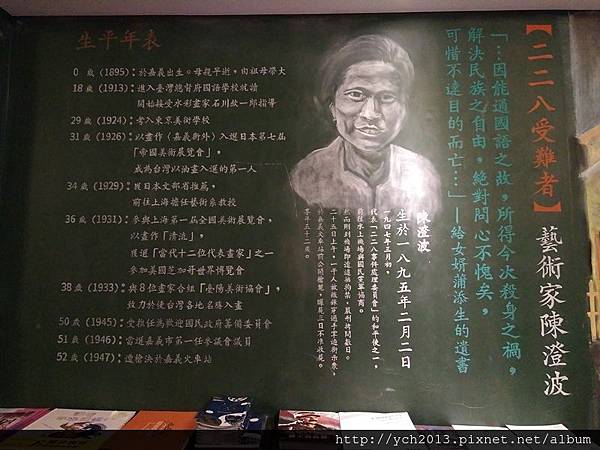 【二二八受難者】藝術家陳澄波
「…因能通國語之故，所得今次殺身之禍，
解決民族之自由，絕對問心不愧矣，
可惜不達目的而亡…」—給女婿蒲添生的遺書
陳澄波
生於一八九五年二月二日
一九四七年三月初，
代表「二二八事件處理委員會」的和平使之一，
前往水上機場與國民黨軍協商。
生平年表
0 歲 (1895)：於嘉義出生。母親早逝，由祖母帶大
18 歲 (1913)：進入臺灣總督府國語學校就讀
開始接受水彩畫家石川欽一郎指導
29 歲 (1924)：考入東京美術學校
31 歲 (1926)：以畫作〈嘉義街外〉入選日本第七屆
「帝國美術展覽會」，
成為台灣以油畫入選的第一人
34 歲 (1929)：獲日本文部省推薦，
前往上海擔任藝術系教授
36 歲 (1931)：參與上海第一屆全國美術展覽會，
以畫作「清流」，
獲選「當代十二位代表畫家」之一
參加美國芝加哥世界博覽會
38 歲 (1933)：與8位畫家合組「臺陽美術協會」，
致力於徒台灣各地名勝入畫
50 歲 (1945)：受推任為歡迎國民政府籌備委員會
51 歲 (1946)：當選嘉義市第一任參議會議員
52 歲 (1947)：遭槍決於嘉義火車站
http://ych2013.pixnet.net/album